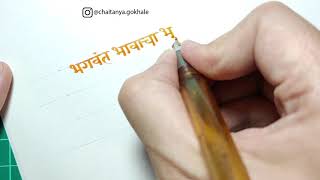 @chaitanya.gokhale
भगवंत भावाचा भु